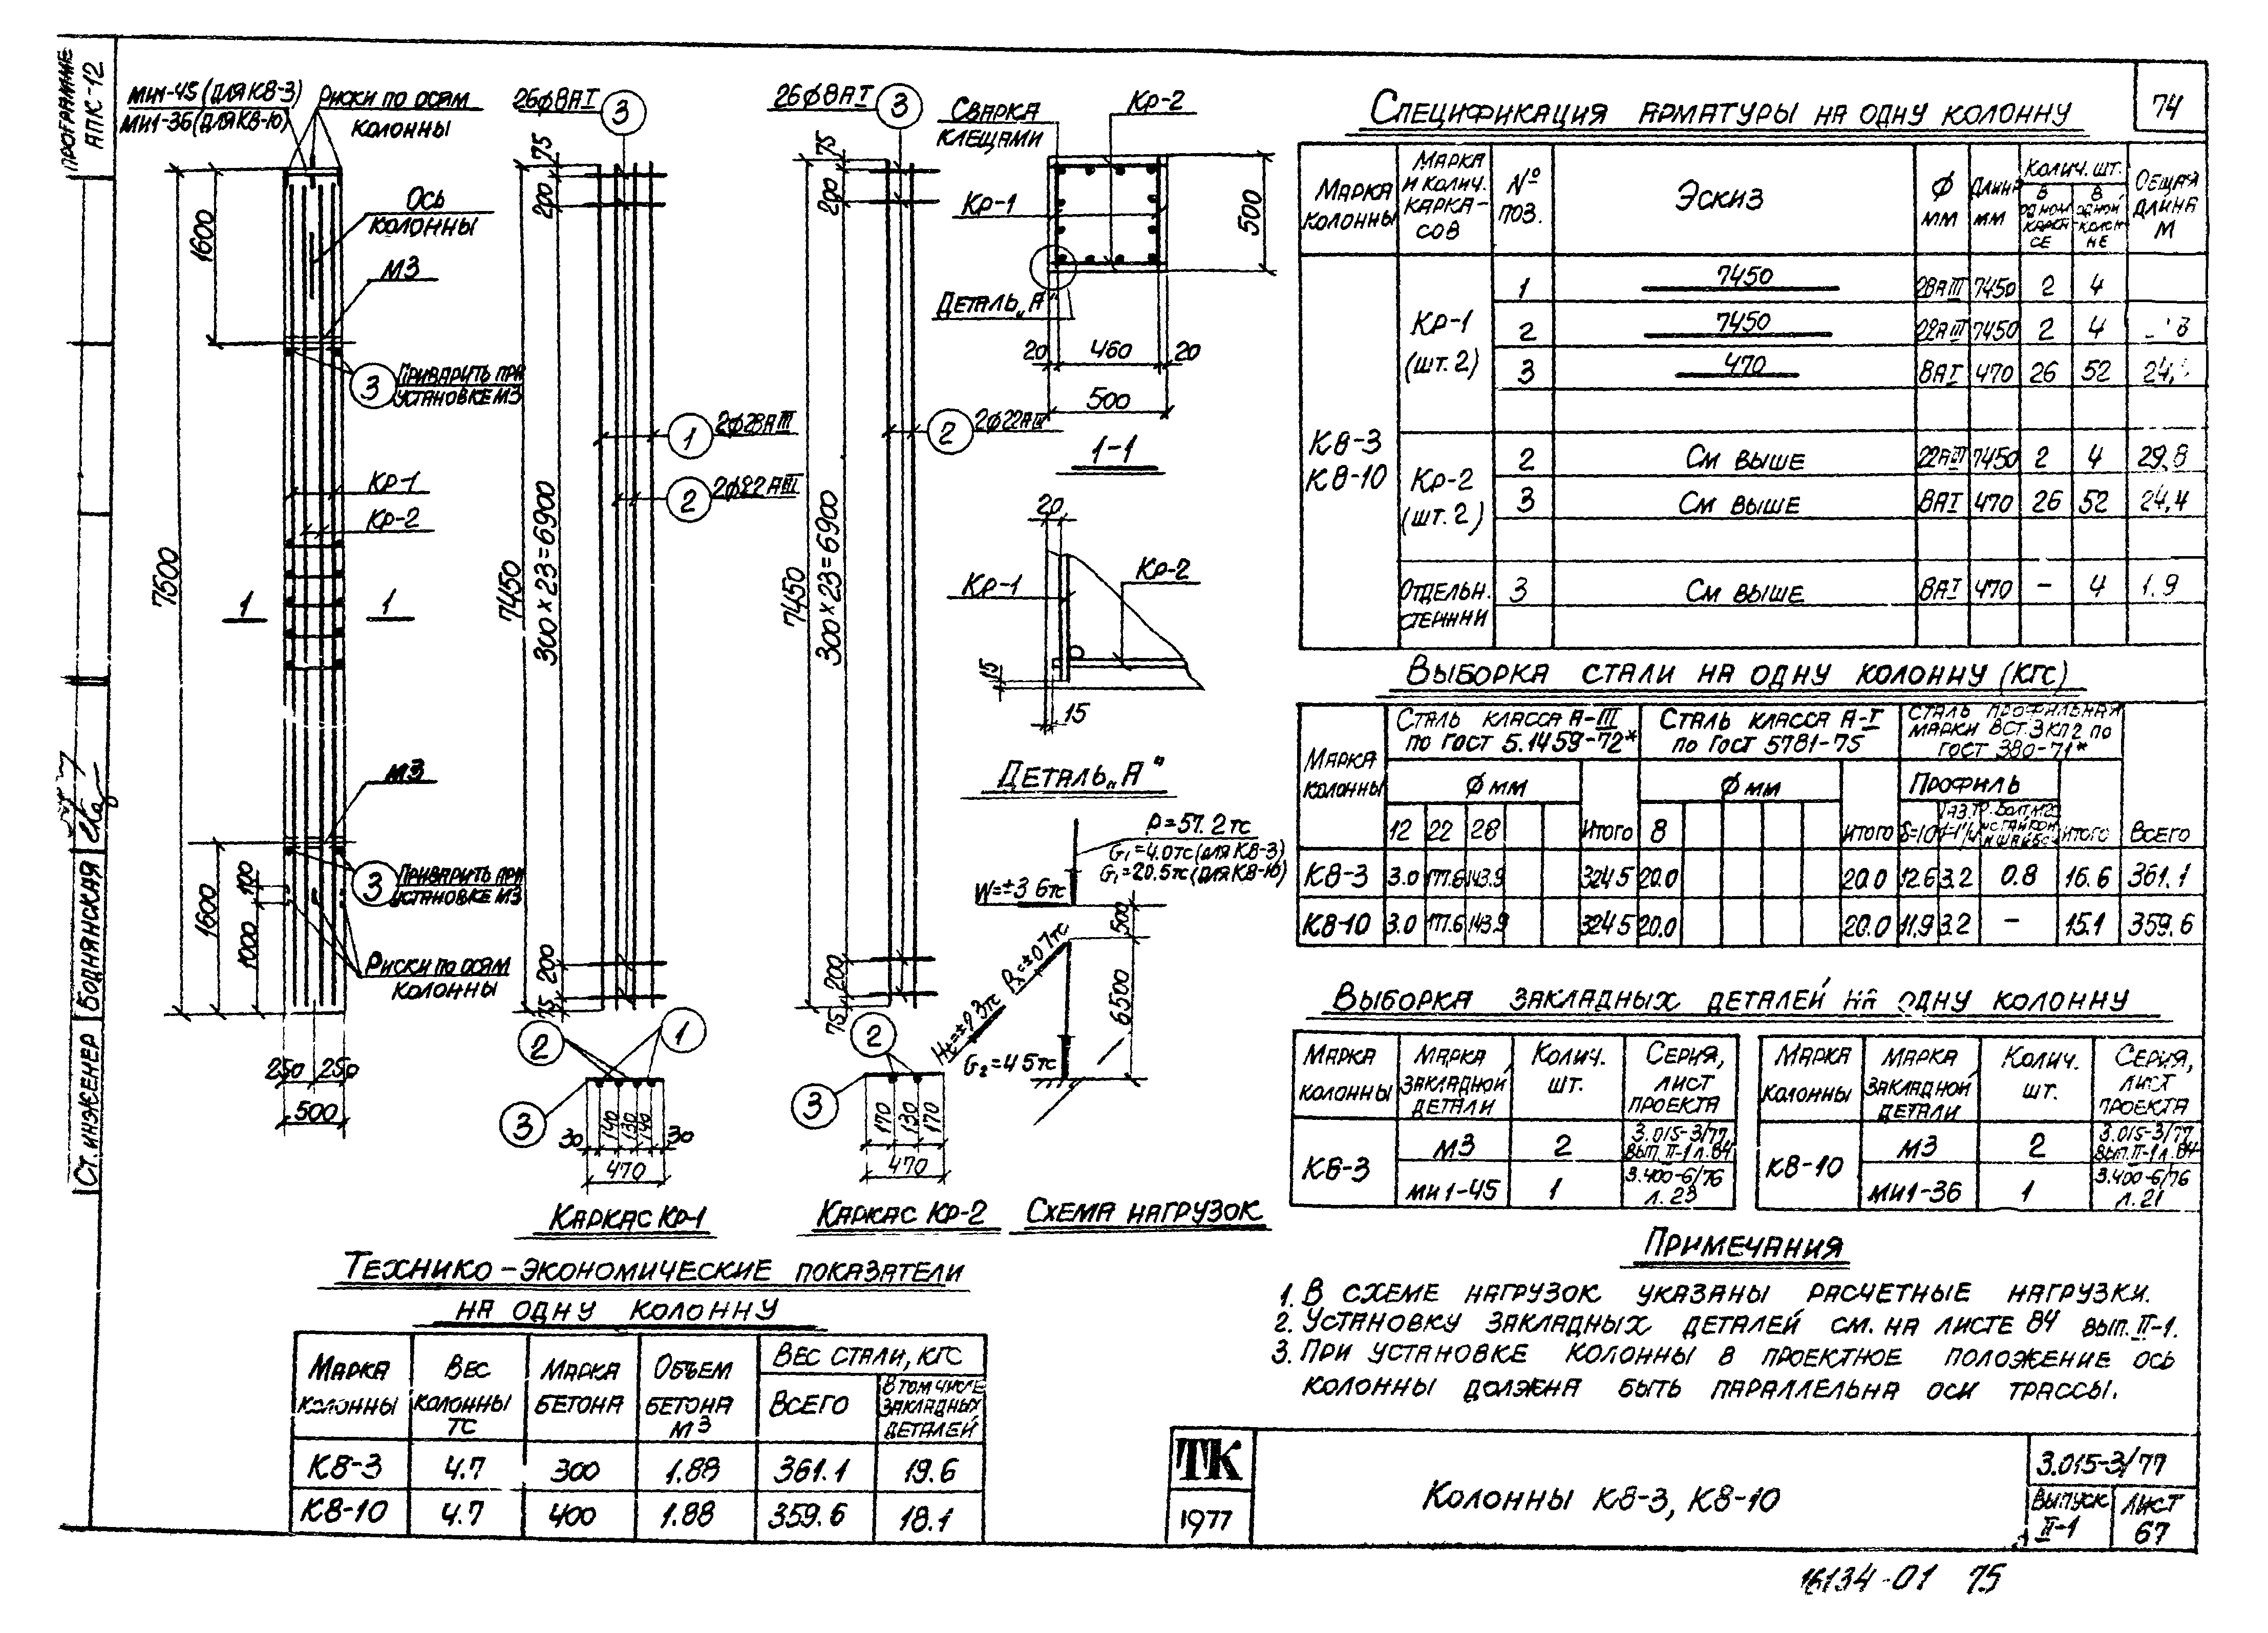 ПРОГРАММЕ
АПК-12
МИ1-45 (ДЛЯ К8-3)
МИ1-36 (ДЛЯ К8-10)
РИСКИ ПО ОСЯМ
КОЛОННЫ
ОСЬ
КОЛОННЫ
М3
1600
3
ПРИВАРИТЬ ПРИ
УСТАНОВКЕ М3
КР-1
КР-2
7600
1
1
М3
3
ПРИВАРИТЬ ПРИ
УСТАНОВКЕ М3
1600
100
1000
РИСКИ ПО ОСЯМ
КОЛОННЫ
250
250
500
СТ. ИНЖЕНЕР
БОДНЯНСКАЯ
26ф8АI
3
75
200
7450
300×23=6900
1
2ф28АIII
2
2ф22АIII
200
75
2
1
3
30
140
130
140
30
470
КАРКАС КР-1
26ф8АI
3
75
200
7450
300×23=6900
2
2ф22АIII
200
75
2
3
170
130
170
470
КАРКАС КР-2
СВАРКА
КЛЕЩАМИ
КР-2
КР-1
500
ДЕТАЛЬ „А"
20
460
20
500
1-1
20
КР-1
КР-2
15
15
ДЕТАЛЬ „А"
P=57.2тс
G1=4.0тс (для К8-3)
G1=20.5тс (для К8-10)
W=±3.6тс
500
6500
G2=4.5тс
СХЕМА НАГРУЗОК
74
СПЕЦИФИКАЦИЯ АРМАТУРЫ НА ОДНУ КОЛОННУ
МАРКА КОЛОННЫ
МАРКА И КОЛИЧ. КАРКАСОВ
№ ПОЗ.
ЭСКИЗ
ф ММ
ДЛИНА ММ
КОЛИЧ. ШТ.
В ОДНОМ КАРКАСЕ
В ОДНОЙ КОЛОННЕ
ОБЩАЯ ДЛИНА М
К8-3
К8-10
КР-1 (ШТ. 2)
1 7450 28АIII 7450 2 4
2 7450 22АIII 7450 2 4
3 470 8АI 470 26 52
КР-2 (ШТ. 2)
2 СМ ВЫШЕ 22АIII 7450 2 4 29,8
3 СМ ВЫШЕ 8АI 470 26 52 24,4
ОТДЕЛЬН. СТЕРЖНИ
3 СМ ВЫШЕ 8АI 470 – 4 1.9
ВЫБОРКА СТАЛИ НА ОДНУ КОЛОННУ (КГС)
МАРКА КОЛОННЫ
СТАЛЬ КЛАССА А-III
ПО ГОСТ 5.1459-72*
СТАЛЬ КЛАССА А-I
ПО ГОСТ 5781-75
СТАЛЬ ПРОФИЛЬНАЯ
МАРКИ ВСТ.3 КП2 ПО
ГОСТ 380-71*
ф ММ
ф ММ
ПРОФИЛЬ
12 22 28 ИТОГО 8 ИТОГО δ=10 ИТОГО ВСЕГО
К8-3 3.0 177.6 143.9 324.5 20.0 20.0 12.6 3.2 0.8 16.6 361.1
К8-10 3.0 177.6 143.9 324.5 20.0 20.0 11.9 3.2 – 15.1 359.6
ВЫБОРКА ЗАКЛАДНЫХ ДЕТАЛЕЙ НА ОДНУ КОЛОННУ
МАРКА КОЛОННЫ
МАРКА ЗАКЛАДНОЙ ДЕТАЛИ
КОЛИЧ. ШТ.
СЕРИЯ, ЛИСТ ПРОЕКТА
К8-3
М3 2 3.015-3/77 ВЫП. II-1 Л. 84
МИ1-45 1 3.400-6/76 Л. 23
МАРКА КОЛОННЫ
МАРКА ЗАКЛАДНОЙ ДЕТАЛИ
КОЛИЧ. ШТ.
СЕРИЯ, ЛИСТ ПРОЕКТА
К8-10
М3 2 3.015-3/77 ВЫП. II-1 Л. 84
МИ1-36 1 3.400-6/76 Л. 21
ПРИМЕЧАНИЯ
1. В СХЕМЕ НАГРУЗОК УКАЗАНЫ РАСЧЕТНЫЕ НАГРУЗКИ.
2. УСТАНОВКУ ЗАКЛАДНЫХ ДЕТАЛЕЙ СМ. НА ЛИСТЕ 84 ВЫП. II-1.
3. ПРИ УСТАНОВКЕ КОЛОННЫ В ПРОЕКТНОЕ ПОЛОЖЕНИЕ ОСЬ
КОЛОННЫ ДОЛЖНА БЫТЬ ПАРАЛЛЕЛЬНА ОСИ ТРАССЫ.
ТЕХНИКО-ЭКОНОМИЧЕСКИЕ ПОКАЗАТЕЛИ
НА ОДНУ КОЛОННУ
МАРКА КОЛОННЫ
ВЕС КОЛОННЫ ТС
МАРКА БЕТОНА
ОБЪЕМ БЕТОНА М3
ВЕС СТАЛИ, КГС
ВСЕГО
В ТОМ ЧИСЛЕ ЗАКЛАДНЫХ ДЕТАЛЕЙ
К8-3 4.7 300 1.88 361.1 19.6
К8-10 4.7 400 1.88 359.6 18.1
ТК
1977
КОЛОННЫ К8-3, К8-10
3.015-3/77
ВЫПУСК II-1
ЛИСТ 67
16134-01 75